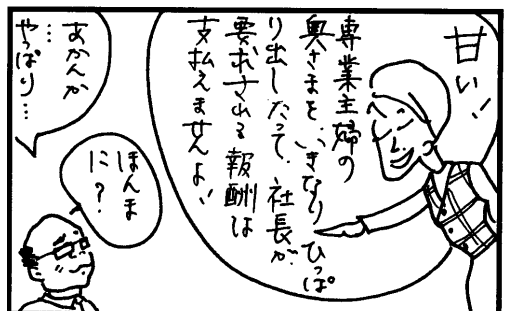 甘い！
専業主婦の
奥さまを、いきなりひっぱ
り出したって、社長が
要求される報酬は
支払えませんよ！
ほんま
に？
あかんか
…
やっぱり…